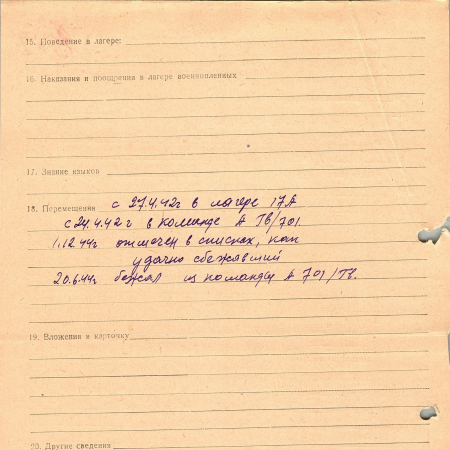 15. Поведение в лагере:
16. Наказания и поощрения в лагере военнопленных
17. Знание языков
18. Перемещения с 27.4.42г в лагере 17А
с 24.4.42г в команде А ТВ/701.
1.12.44г отмечен в списках, как
удачно сбежавший
20.6.44г бежал из команды А 701/ТВ.
19. Вложения в карточку
20. Другие сведения